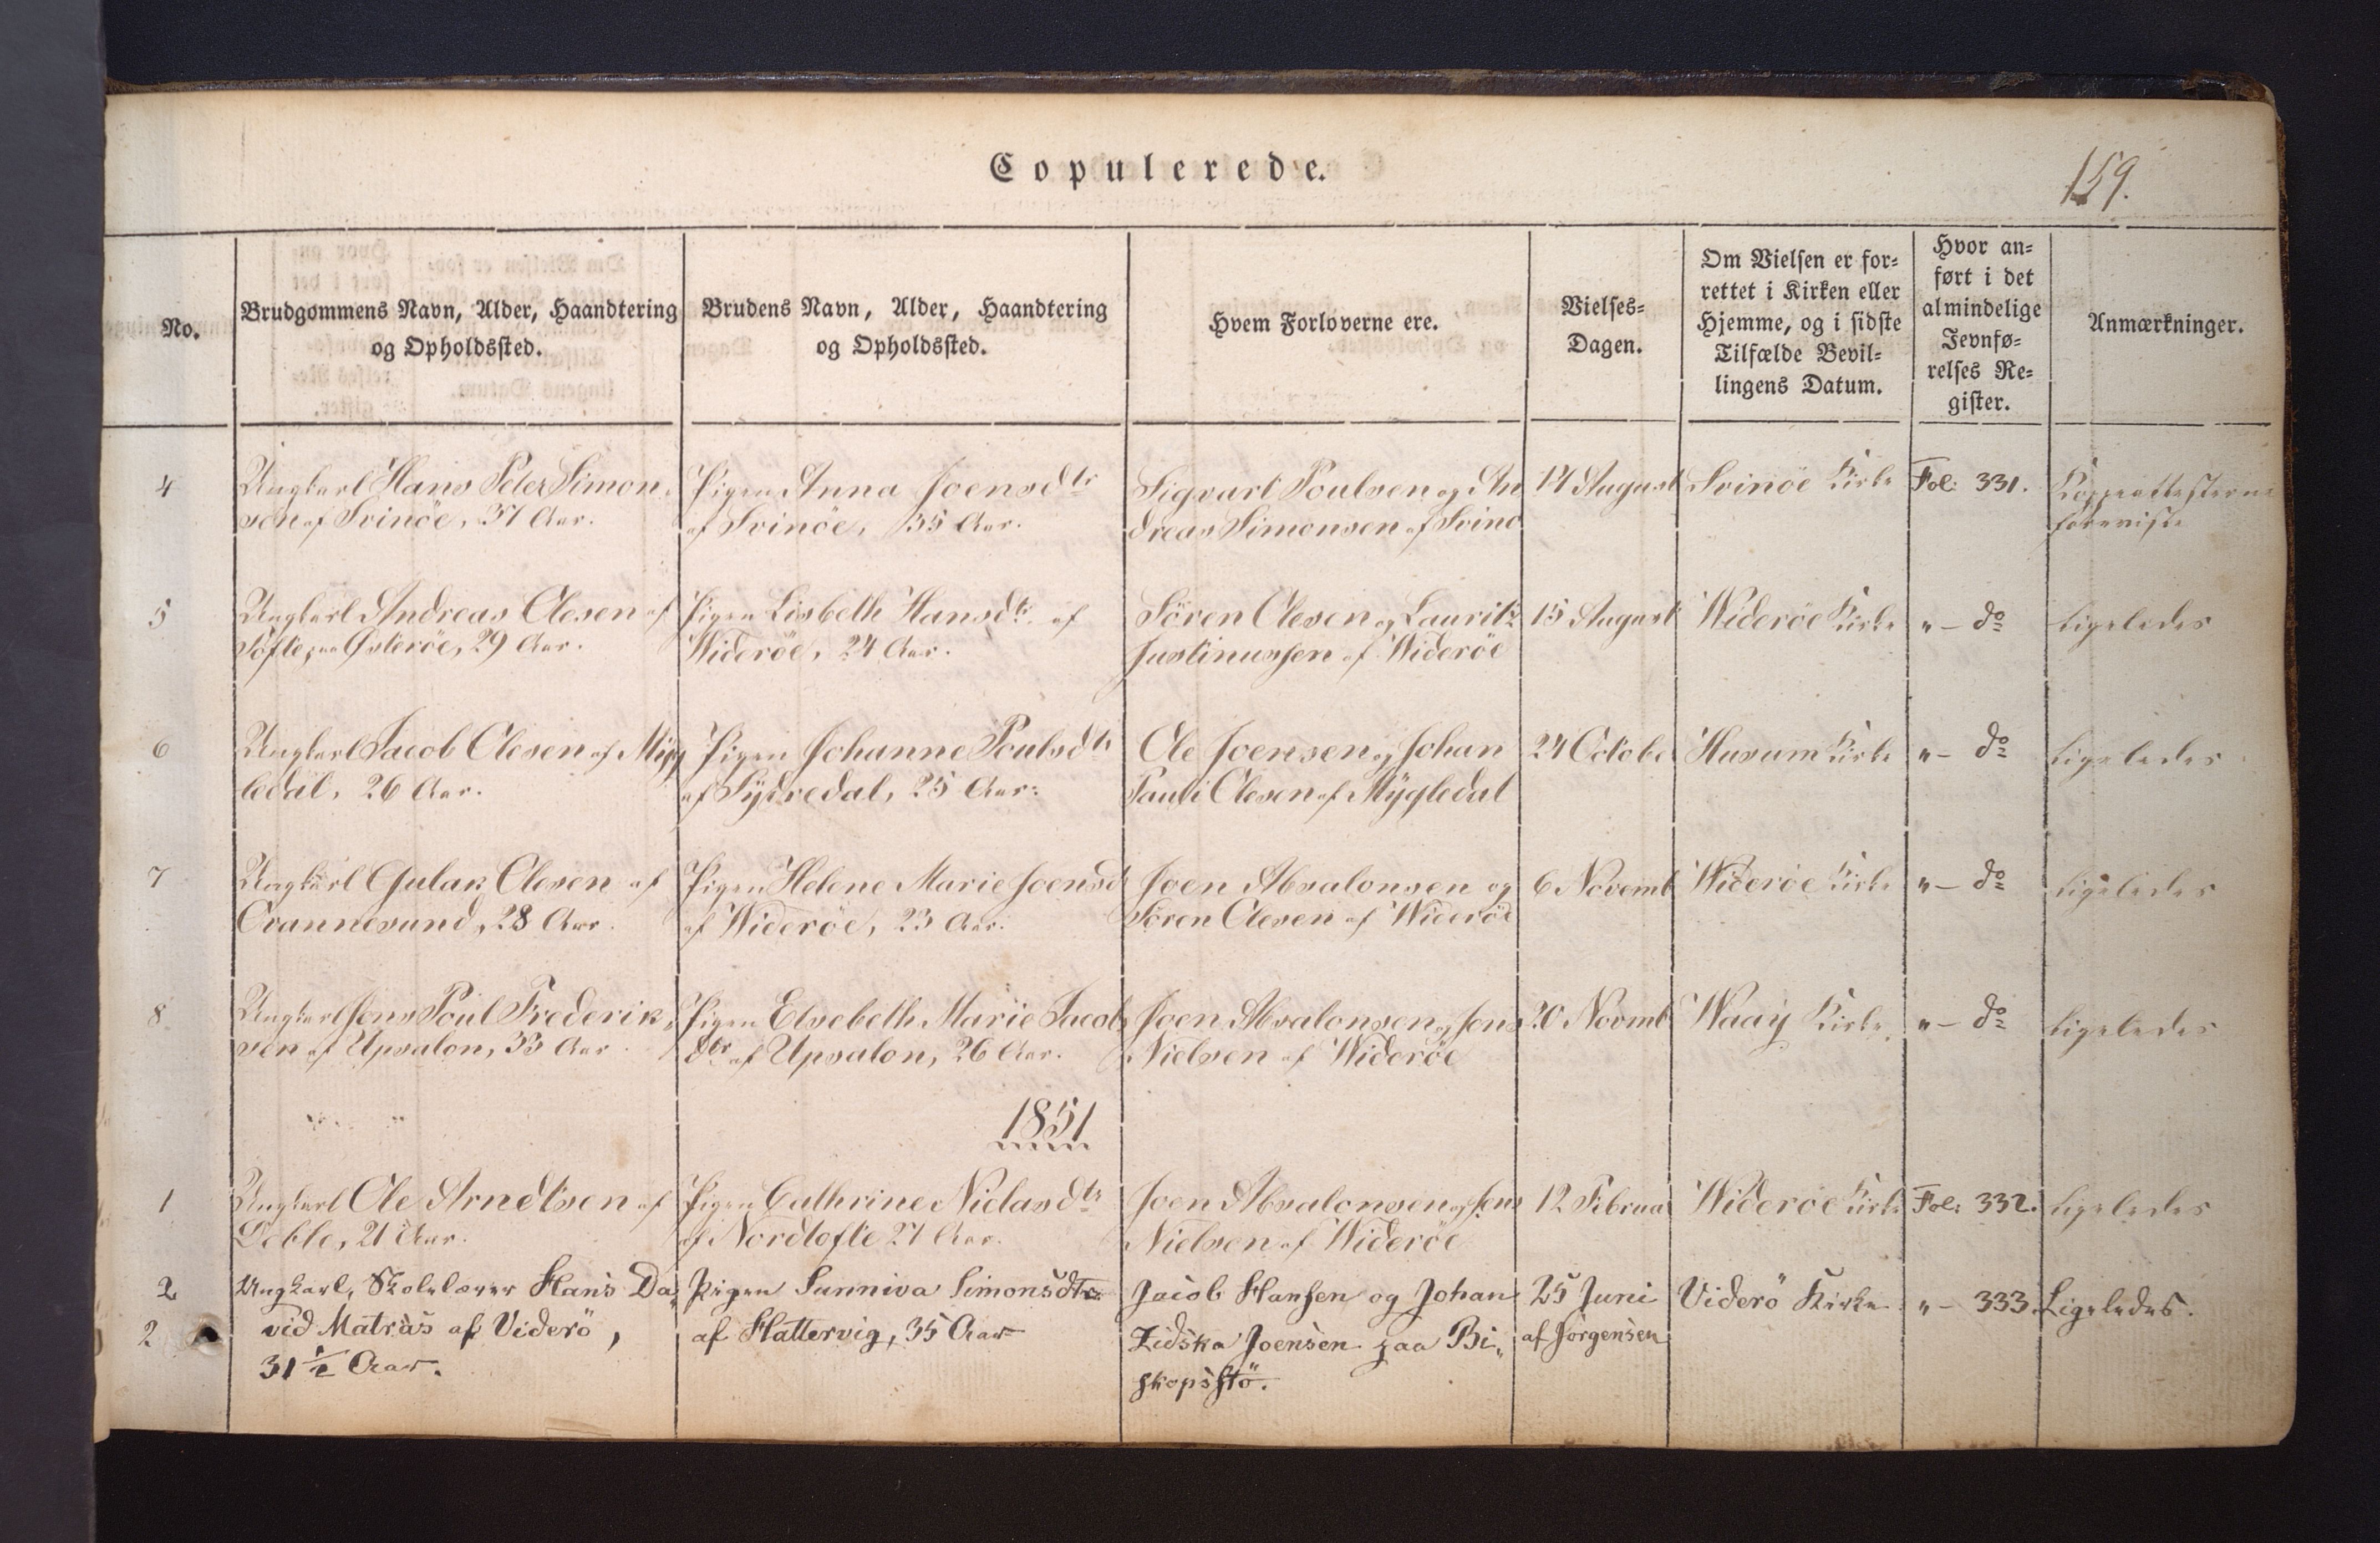 Copulerede.
159.
No.
Brudgommens Navn, Alder, Haandtering
og Opholdssted.
Brudens Navn, Alder, Haandtering
og Opholdssted.
Hvem Forloverne ere.
Vielses-
Dagen.
Om Vielsen er for-
rettet i Kirken eller
Hjemme, og i sidste
Tilfælde Bevil-
lingens Datum.
Hvor an-
ført i det
almindelige
Jevnfø-
relses Re-
gister.
Anmærkninger.
4
Ungkarl Hans Peter Simon-
sen af Svinöe, 37 Aar.
Pigen Anna Joensdtr
af Svinöe, 35 Aar.
Sigvart Poulsen og An
dreas Simonsen af Svinö
14 August
Svinöe Kirke
Fol: 331.
Koppeattesterne
foreviste
5
Ungkarl Andreas Olesen af
Tofte paa Østeröe, 29 Aar.
Pigen Lisbeth Hansdtr. af
Wideröe, 24 Aar.
Sören Olesen og Lauritz
Justinussen af Wideröe
15 August
Wideröe Kirke
"- do
ligeledes
6
Ungkarl Jacob Olesen af Myg
ledal, 26 Aar.
Pigen Johanne Poulsdtr
af Sydredal, 25 Aar:
Ole Joensen og Johan
Pauli Olesen af Mygledal
24 Octobe
Husum Kirke
"- do
ligeledes
7
Ungkarl Gulak Olesen af
Qvannesund, 28 Aar.
Pigen Helene Marie Joensd
af Wideröe, 23 Aar.
Joen Absalonsen og
Sören Olesen af Wideröe
6 Novemb
Wideröe Kirke
"- do
ligeledes
8
Ungkarl Jens Poul Frederik
sen af Upsalon, 33 Aar
Pigen Elsebeth Marie Jacobs
dtr af Upsalon, 26 Aar.
Joen Absalonsen og Jens
Nielsen af Wideröe
20 Novmb
Waay Kirke
"- do
ligeledes
1851
1
Ungkarl Ole Arndtsen af
Deble, 21 Aar.
Pigen Cathrine Niclasdtr
af Nordtofte 27 Aar.
Joen Absalonsen og Jens
Nielsen af Wideröe
12 Februa
Wideröe Kirke
Fol: 332.
ligeledes
2
Ungkarl, Skolelærer Hans Da„
vid Matras af Viderö,
31 1/2 Aar.
Pigen Sunniva Simonsdtr
af Hattervig, 35 Aar
Jacob Hansen og Johan
Zidska Joensen paa Bi„
skopsstö.
25 Juni
af Jörgensen
Viderö Kirke
"- 333.
Ligeledes.
2